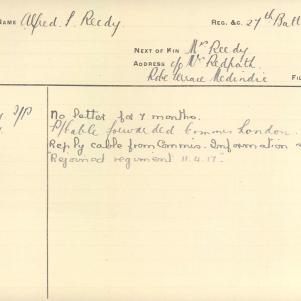 NAME Alfred. S. Reedy. REG. &C. 27th Batt
NEXT OF KIN Mrs Reedy
ADDRESS c/o Mr Redpath
Robe Terrace Medindie FI
T/P No letter for 7 months.
P/Cable forwarded Commis London.
Reply cable from Commis. Information
"Rejoined regiment 11.4.17."